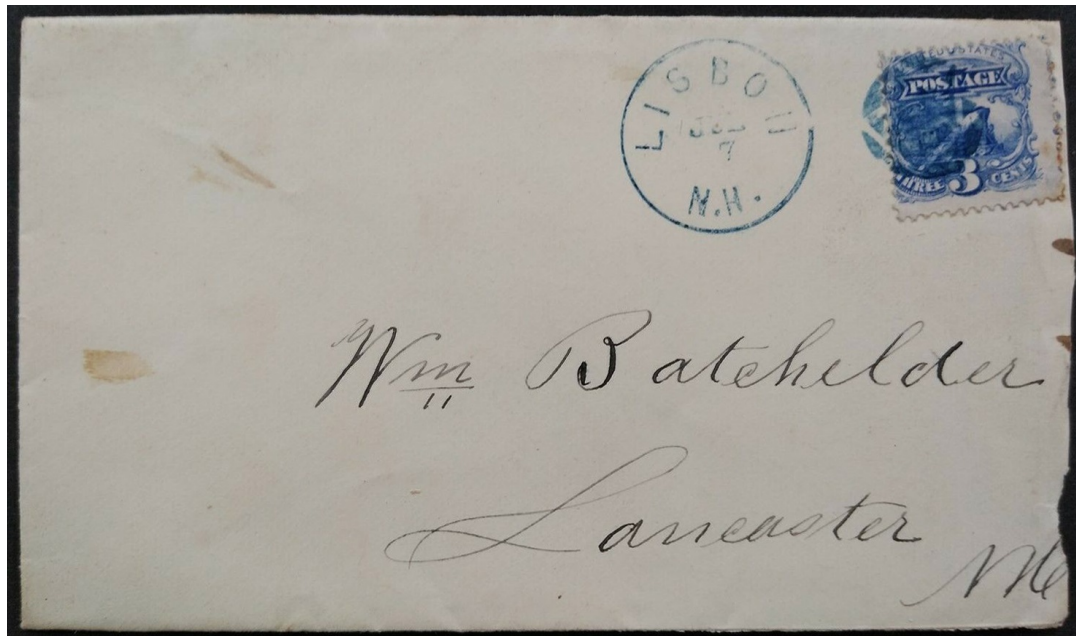 LISBON
JUL
7
N.H.
UNITED STATES
POSTAGE
THREE 3 CENTS
Wm Batchelder
Lancaster